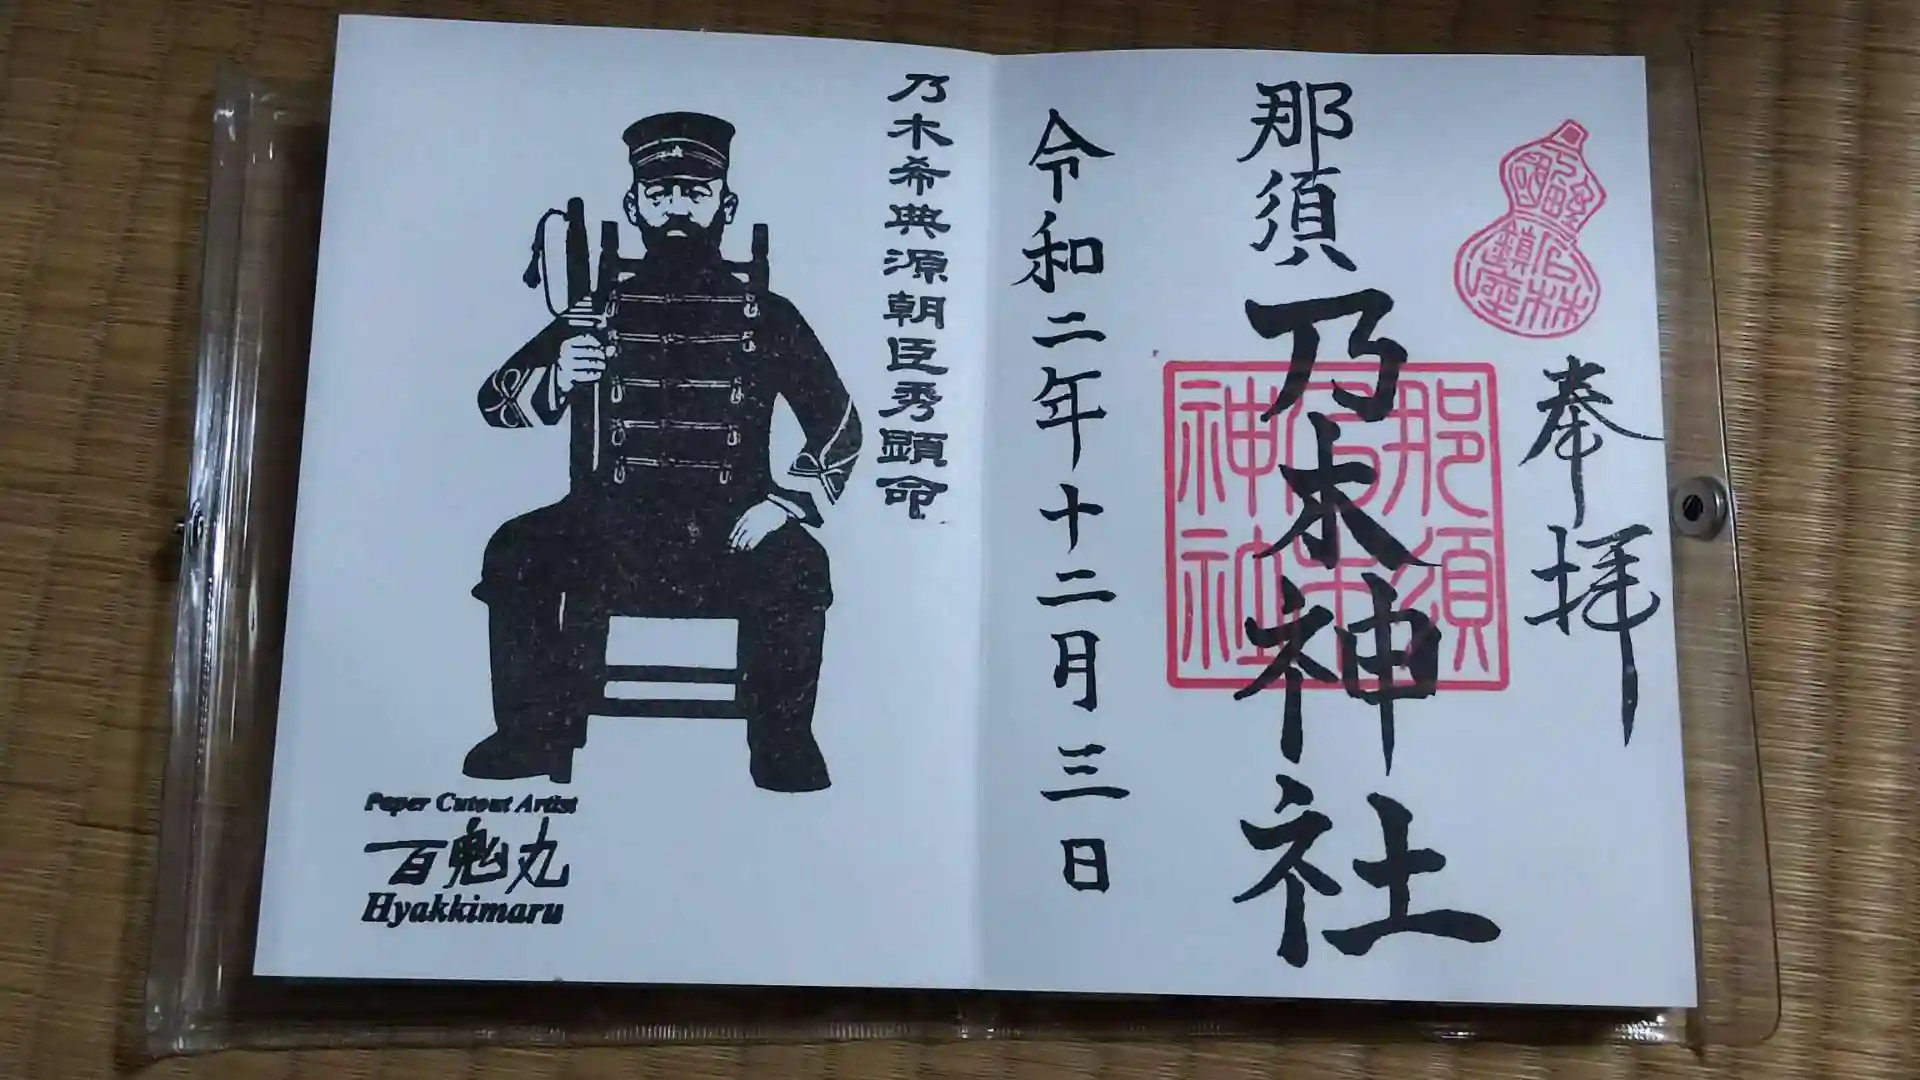 奉拝
那須乃木神社
那須乃木神社
令和二年十二月三日
乃木希典源朝臣秀顕命
Paper Cutout Artist
百鬼丸
Hyakkimaru